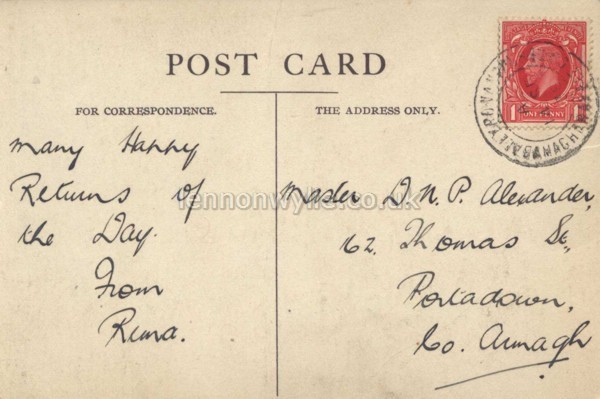 POST CARD
FOR CORRESPONDENCE.
THE ADDRESS ONLY.
Many Happy
Returns of
the Day.
From
Rema.
Master D. N. P. Alexander,
62. Thomas St.,
Portadown,
Co. Armagh
1 ONE PENNY 1
lennonwylie.co.uk